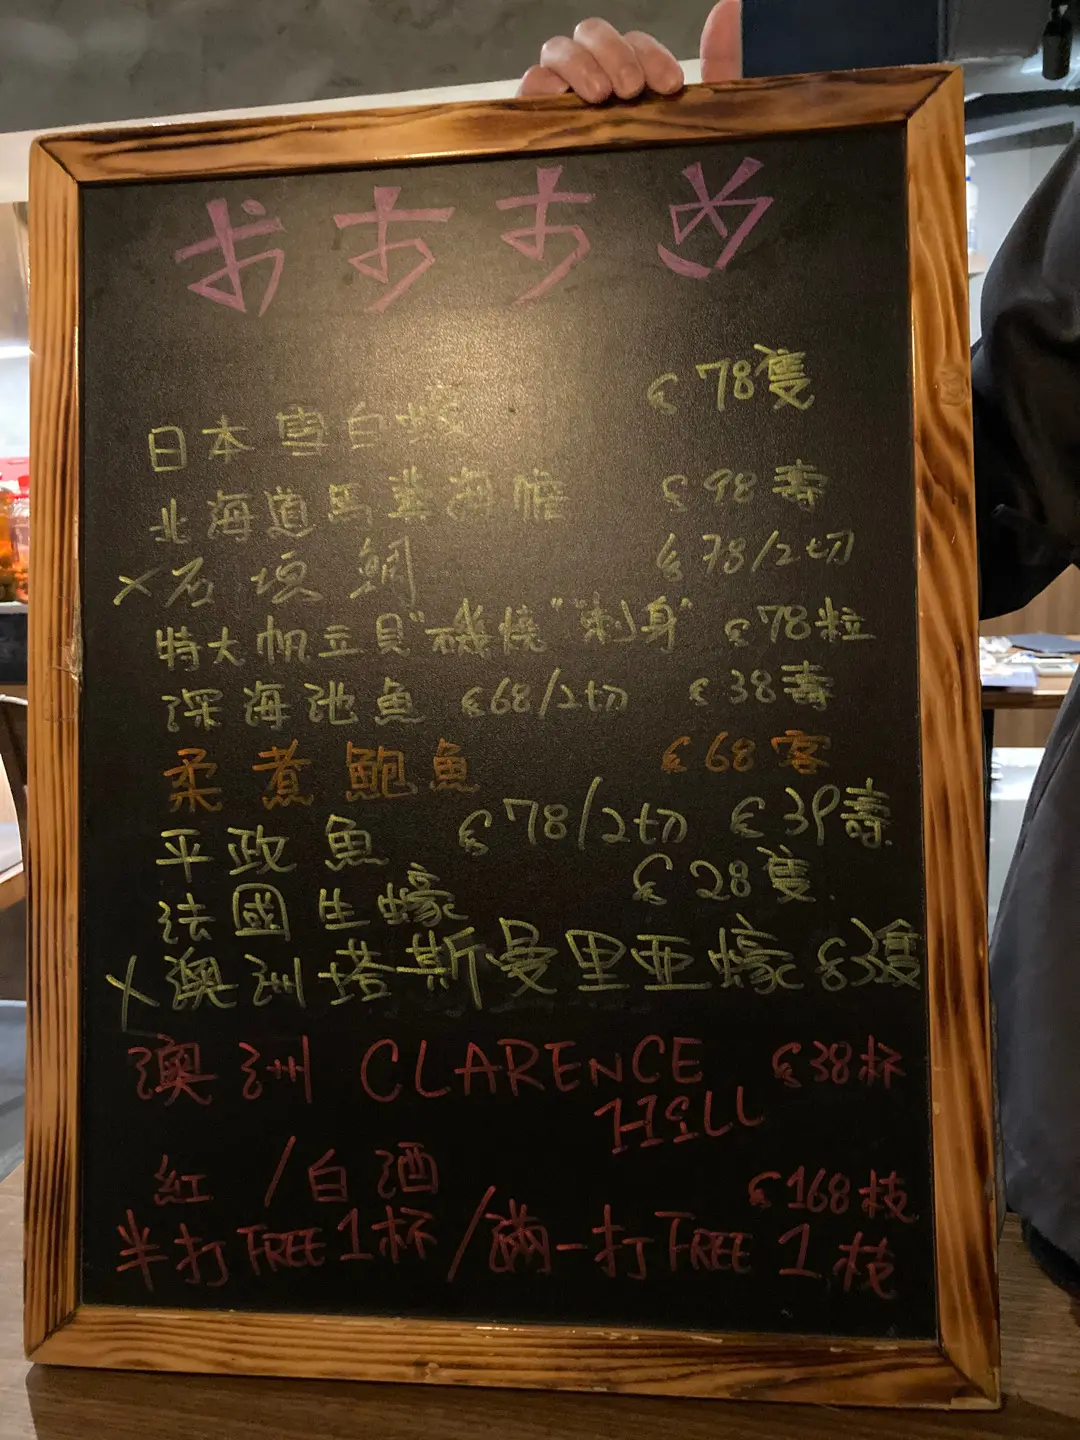 おすすめ
日本雪白蠔 $78隻
北海道馬糞海胆 $98壽
X石垣鯛 $78/2切
特大帆立貝"磯燒""刺身" $78粒
深海池魚 $68/2切 $38壽
柔煮鮑魚 $68客
平政魚 $78/2切 $39壽
法國生蠔 $28隻
X澳洲塔斯曼里亜蠔
澳洲 CLARENCE $38杯
HiLL
紅/白酒 $168枝
半打FREE 1杯/滿一打FREE 1枝